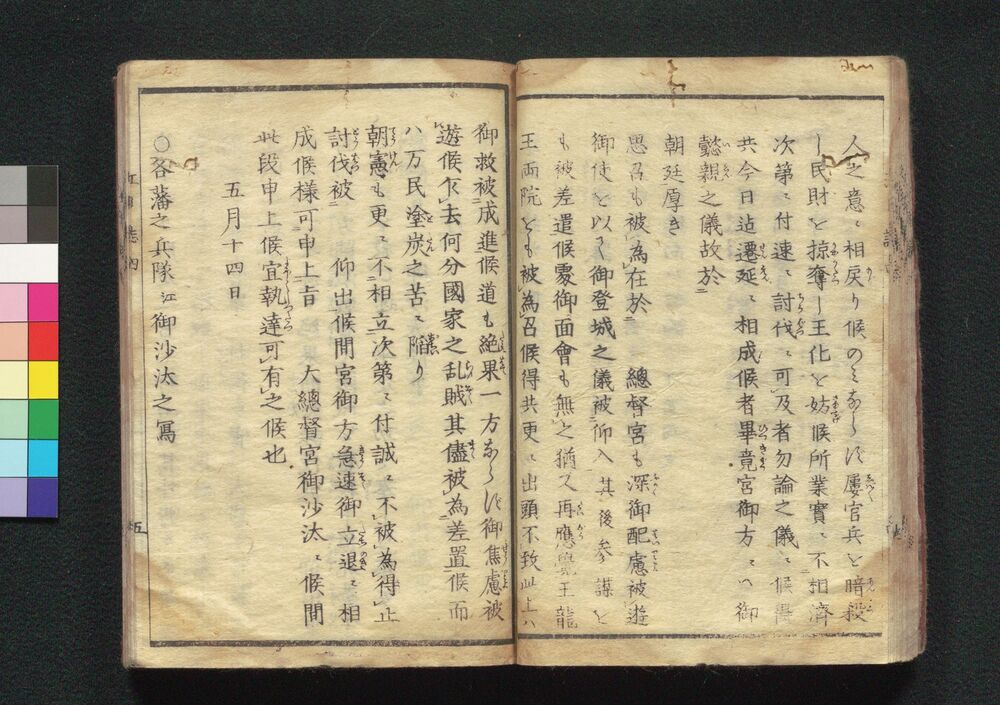 人之意ニ相戻り候のミならス屢官兵を暗殺
し民財を掠奪し王化を妨候所業實ニ不相濟
次第ニ付速ニ討伐ニ可及者勿論之儀ニ候得
共今日迄遷延ニ相成候者畢竟宮御方ニハ御
懿親之儀故於
朝廷厚き
思召も被為在於 總督宮も深御配慮被遊
御使を以て御登城之儀被仰入其後参謀を
も被差遣候處御面會も無之猶又再應覺王龍
王兩院をも被為召候得共更ニ出頭不致此上ハ
御救被成進候道も絶果一方ならス御焦慮被
遊候乍去何分國家之乱賊其儘被為差置候而
ハ万民塗炭之苦ニ陥り
朝憲も更ニ不相立次第ニ付誠ニ不被為得止
討伐被 仰出候間宮御方急速御立退ニ相
成候様可申上旨 大總督宮御沙汰ニ候間
此段申上候宜執達可有之候也
五月十四日
○各藩之兵隊江御沙汰之冩
五